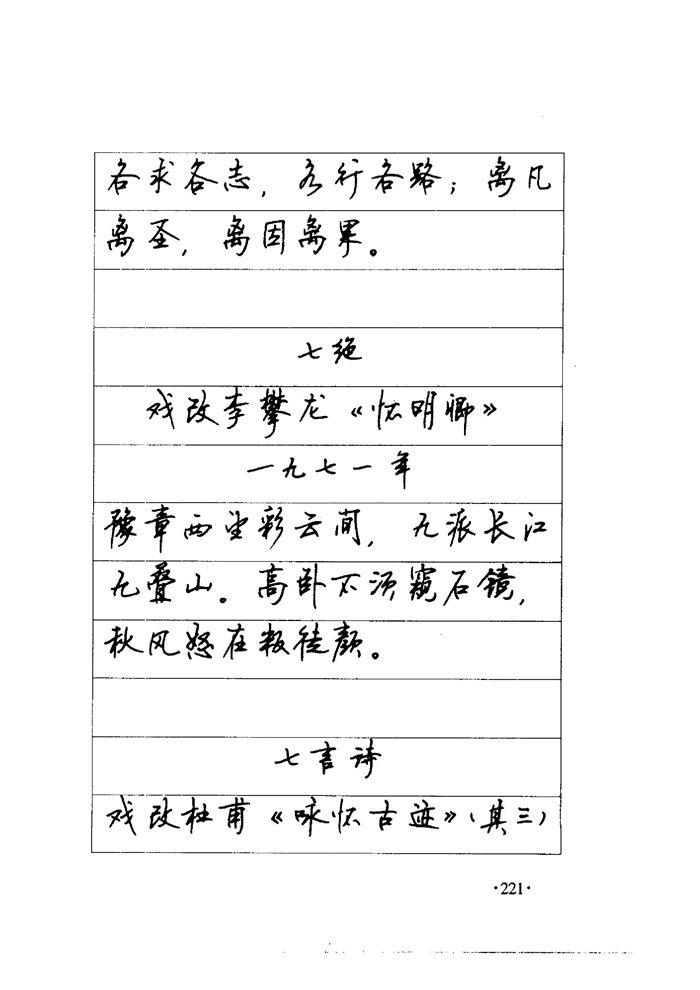 各求各志，各行各路；离凡
离圣，离因离果。
七绝
戏改李攀龙《怀明卿》
一九七一年
豫章西望彩云间，九派长江
九叠山。高卧不须窥石镜，
秋风怒在叛徒颜。
七言诗
戏改杜甫《咏怀古迹》（其三）
·221·